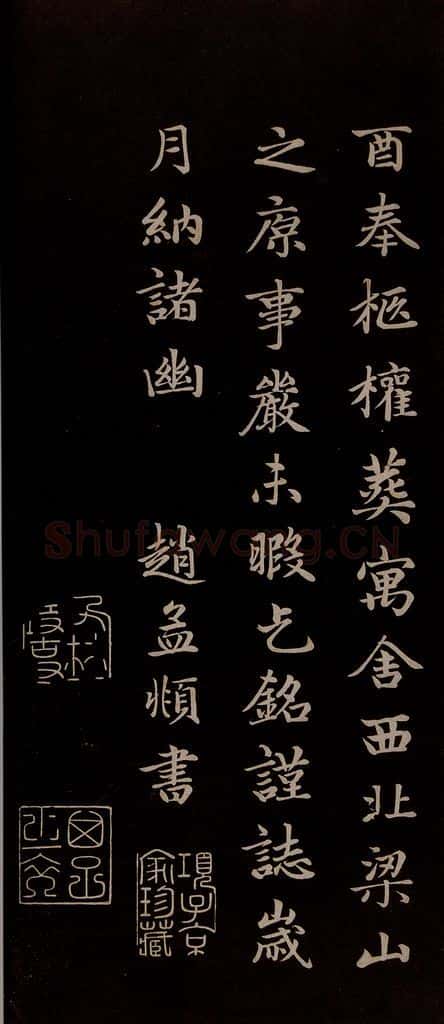 酉奉柩權葬寓舍西北梁山
之原事嚴未暇乞銘謹誌歲
月納諸幽　趙孟頫書
項子京
家珍藏
Shufawang.CN